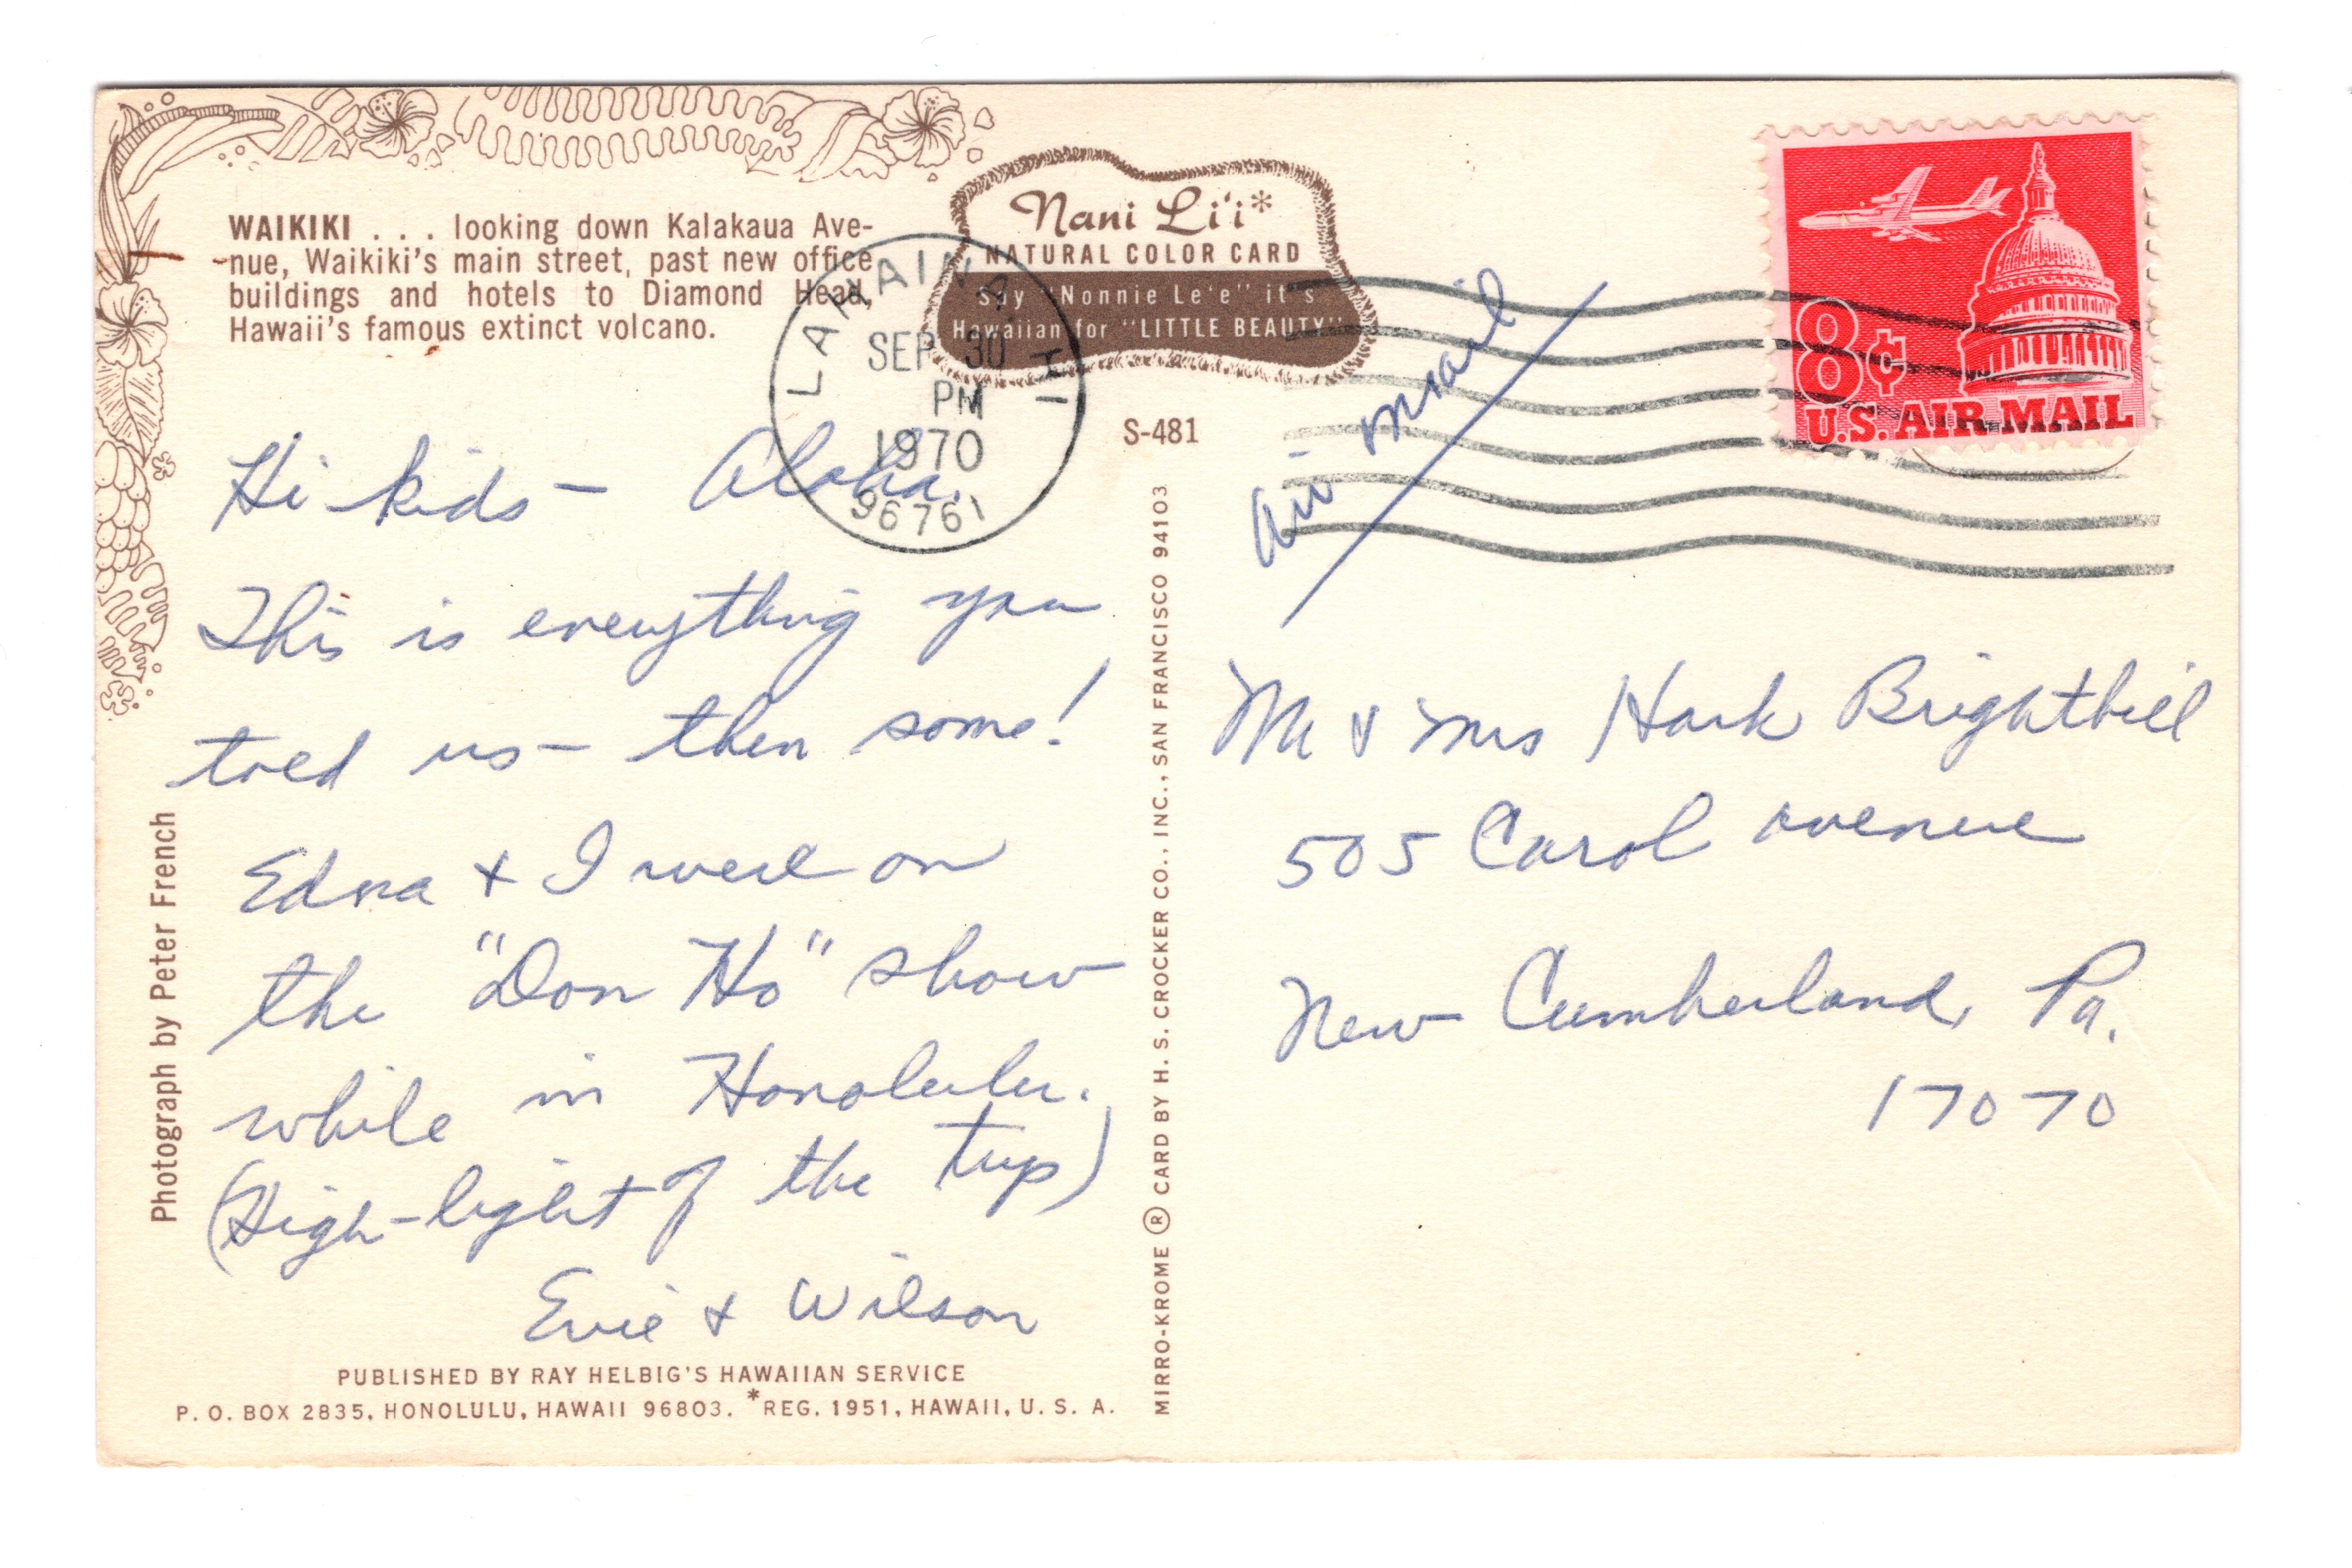 WAIKIKI . . . looking down Kalakaua Ave-
nue, Waikiki's main street, past new office
buildings and hotels to Diamond Head,
Hawaii's famous extinct volcano.
Nani Li'i*
NATURAL COLOR CARD
Say "Nonnie Le'e" it's
Hawaiian for "LITTLE BEAUTY"
LAHAINA HI
SEP 30
PM
1970
96761
S-481
8¢
U.S. AIR MAIL
air mail
Hi kids — Aloha.
This is everything you
told us — then some!
Edna + I were on
the "Don Ho" show
while in Honolulu.
(High-light of the trip)
Evie + Wilson
Mr & Mrs Hark Brightbill
505 Carol avenue
New Cumberland, Pa.
17070
Photograph by Peter French
MIRRO-KROME ® CARD BY H. S. CROCKER CO., INC., SAN FRANCISCO 94103
PUBLISHED BY RAY HELBIG'S HAWAIIAN SERVICE
P. O. BOX 2835, HONOLULU, HAWAII 96803. *REG. 1951, HAWAII, U. S. A.